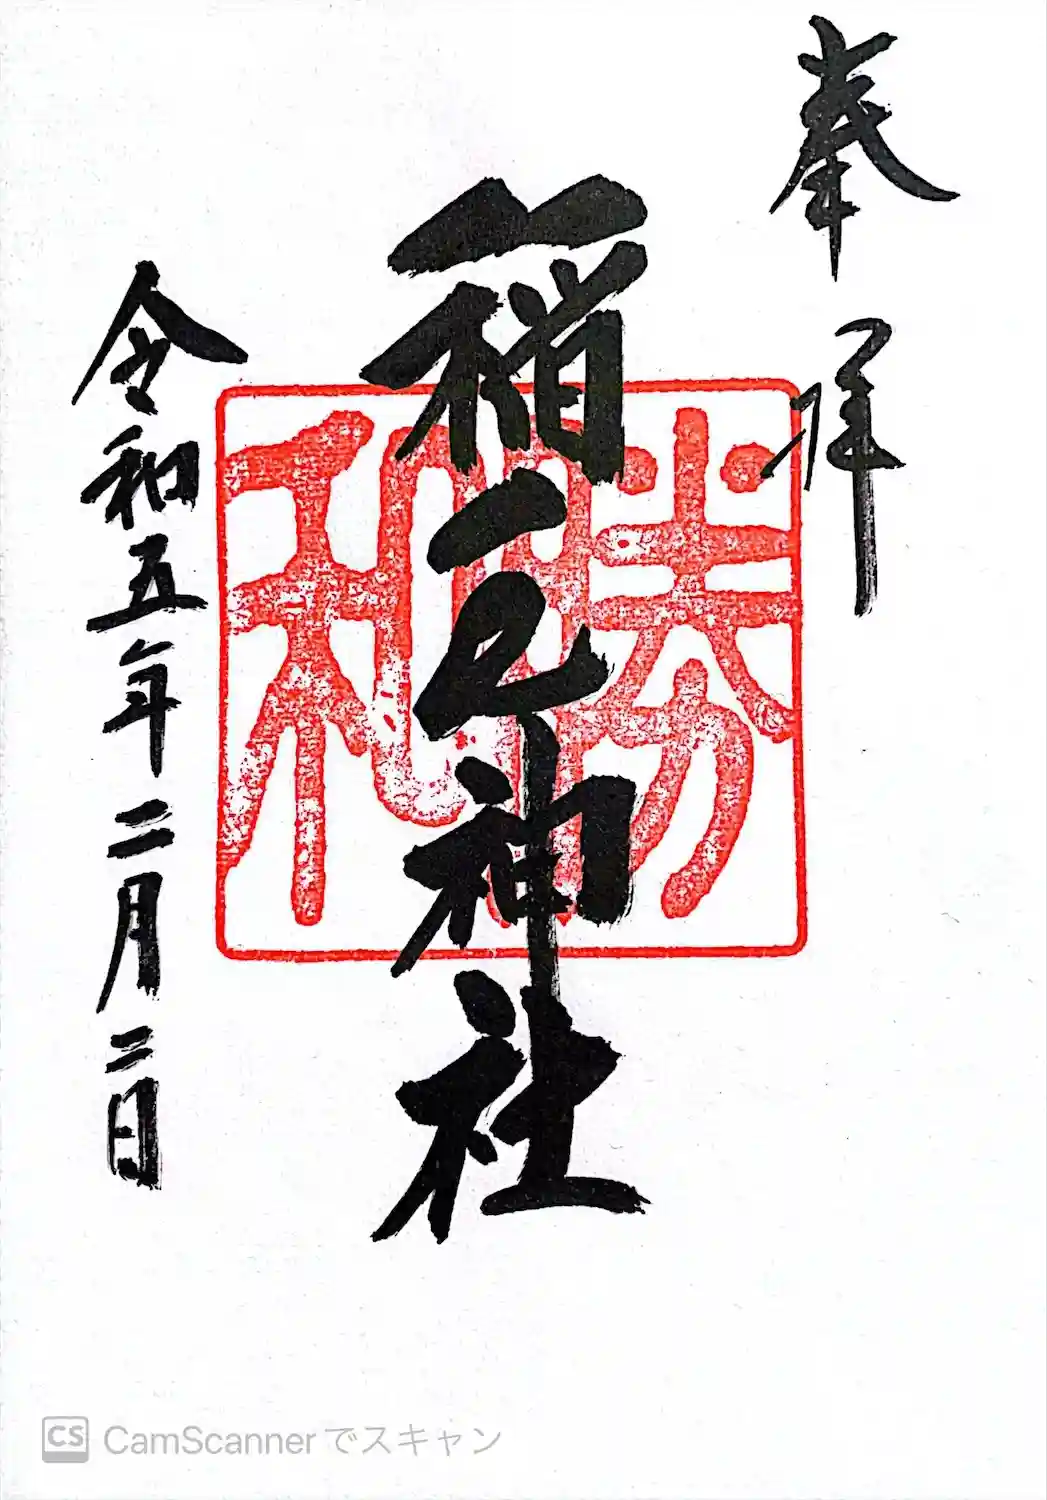 奉拝
神社
令和五年二月二日
勝和
CS CamScannerでスキャン